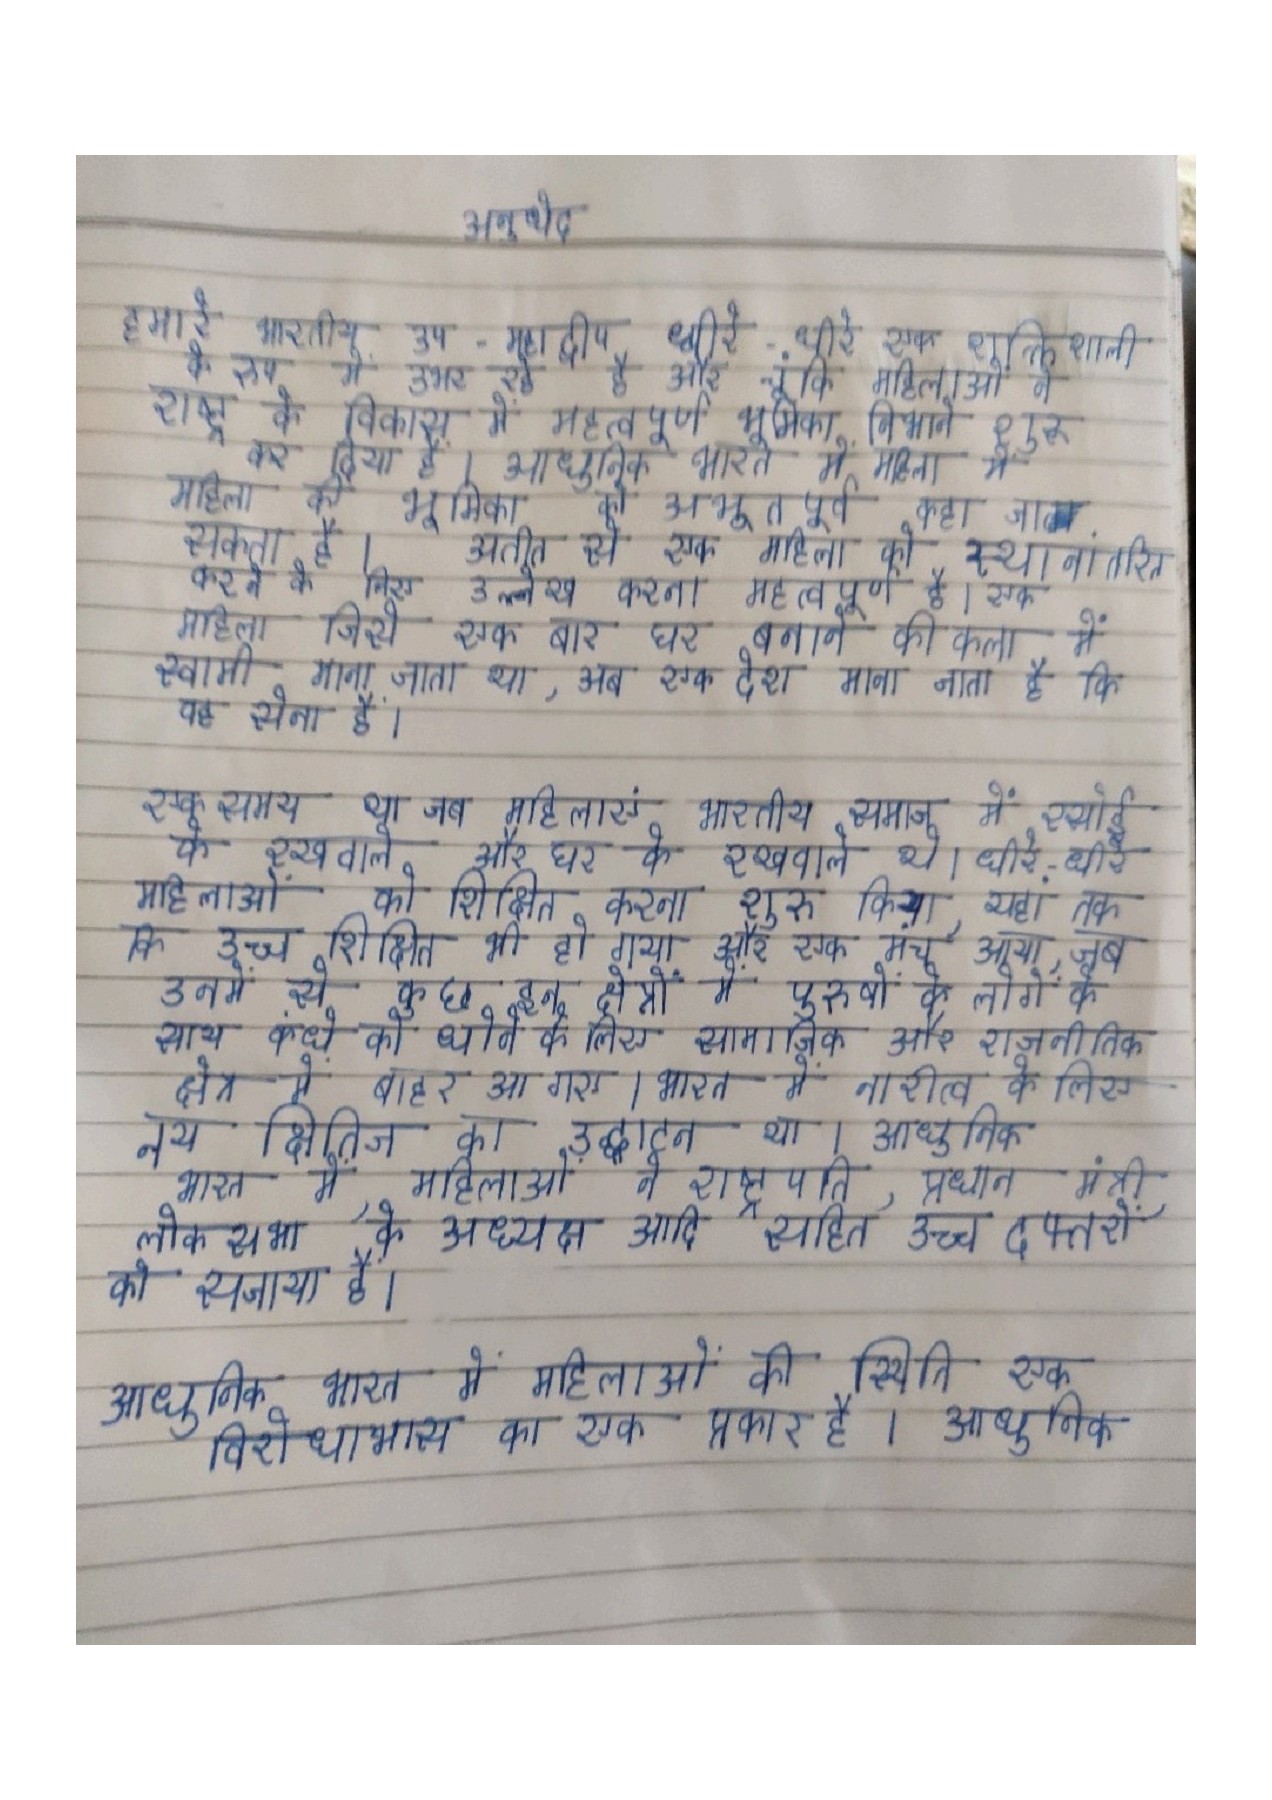 अनुछेद
हमारे भारतीय उप - महाद्वीप धीरे - धीरे एक शक्तिशाली
के रुप में उभर रहे है और चूंकि महिलाओं ने
राष्ट्र के विकास में महत्वपूर्ण भूमिका निभाने शुरू
कर दिया है । आधुनिक भारत में महिला में
महिला की भूमिका को अभूतपूर्व कहा जा
सकता है । अतीत से एक महिला को स्थानांतरित
करने के लिए उल्लेख करना महत्वपूर्ण है । एक
महिला जिसे एक बार घर बनाने की कला में
स्वामी माना जाता था , अब एक देश माना जाता है कि
वह सेना है ।
एक समय था जब महिलाएं भारतीय समाज में रसोई
के रखवाले और घर के रखवाले थे । धीरे - धीरे
महिलाओं को शिक्षित करना शुरु किया, यहां तक
कि उच्च शिक्षित भी हो गया और एक मंच आया, जब
उनमें से कुछ इन क्षेत्रों में पुरुषों के लोगों के
साथ कंधे को धोने के लिए सामाजिक और राजनीतिक
क्षेत्र में बाहर आ गए । भारत में नारीत्व के लिए
नय क्षितिज का उद्घाटन था । आधुनिक
भारत में, महिलाओं ने राष्ट्रपति , प्रधान मंत्री,
लोकसभा के अध्यक्ष आदि सहित उच्च दफ्तरों
को सजाया है ।
आधुनिक भारत में महिलाओं की स्थिति एक
विरोधाभास का एक प्रकार है । आधुनिक